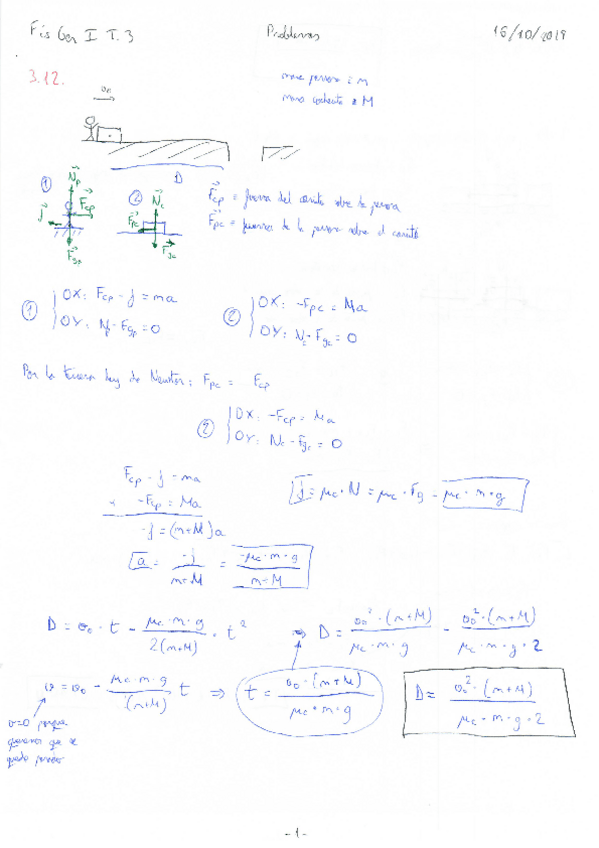 Fis Gen I T.3 Problemas 16/10/2019
3.12.
masa persona = m
v₀
masa cochecito = M
D
① N⃗p F⃗cp f⃗ F⃗gp
② N⃗c F⃗pc F⃗gc
F⃗cp = fuerza del carrito sobre la persona
F⃗pc = fuerza de la persona sobre el carrito
① { OX: Fcp - f = ma
OY: Np - Fgp = 0
② { OX: -Fpc = Ma
OY: Nc - Fgc = 0
Por la tercera ley de Newton: Fpc = Fcp
② { OX: -Fcp = Ma
OY: Nc - Fgc = 0
Fcp - f = ma
+ -Fcp = Ma
-f = (m+M)a
a = -f / m+M = -μc·m·g / m+M
f = μc·N = μc·Fg = μc·m·g
D = v₀·t - μc·m·g / 2(m+M) · t² ⇒ D = v₀²·(m+M) / μc·m·g - v₀²·(m+M) / μc·m·g·2
v = v₀ - μc·m·g / (m+M) t ⇒ t = v₀·(m+M) / μc·m·g
D = v₀²·(m+M) / μc·m·g·2
v=0 porque
queremos que se
quede parado
-1-